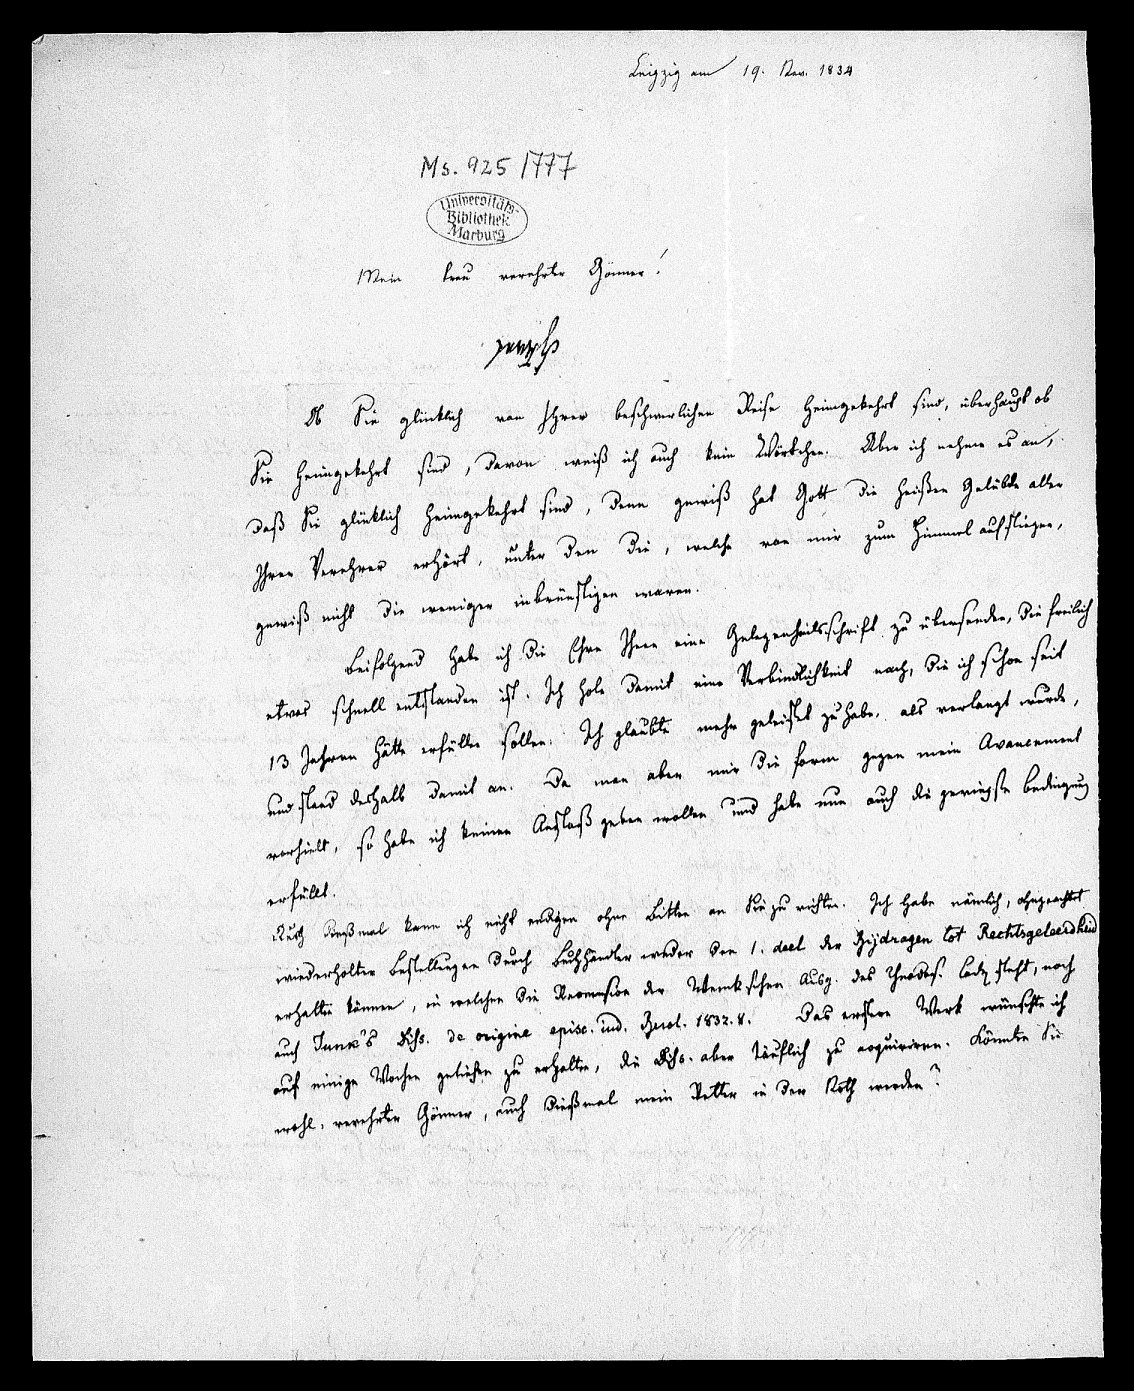 Leipzig am 19. Nov. 1834
Ms. 925/777
Universitäts-
Bibliothek
Marburg
Mein treu verehrter Gönner!
Ob Sie glücklich von Ihrer beschwerlichen Reise heimgekehrt sind, überhaupt ob
Sie heimgekehrt sind, davon weiß ich auch kein Wörtchen. Aber ich nehme es an,
daß Sie glücklich heimgekehrt sind, denn gewiß hat Gott die heißen Gelübde aller
Ihrer Verehrer erhört, unter den die, welche von mir zum Himmel aufstiegen,
gewiß nicht die weniger inbrünstigen waren.
Beifolgend habe ich die Ehre Ihnen eine Gelegenheitsschrift zu übersenden, die freilich
etwas schnell entstanden ist. Ich hole damit eine Verbindlichkeit nach, die ich schon seit
13 Jahren hätte erfüllen sollen. Ich glaubte mehr geleistet zu habe, als verlangt wurde,
und stand deshalb damit an. Da man aber mir die Form gegen mein Avancement
vorhielt, so habe ich keinen Anstoß geben wollen und habe nun auch die geringste Bedingung
erfüllt.
Auch dießmal kann ich nicht endigen ohne Bitten an Sie zu richten. Ich habe nämlich, ohngeachtet
wiederholter Bestellungen durch Buchhändler weder den 1. deel der Bijdragen tot Rechtsgeleerdheid
erhalten können, in welchen die Recension der Wenkschen Ausg. des Theodos. Cod. steht, noch
auch Diss. de origine episc. iud. 1832. 8. Das erstere Werk wünschte ich
auf einige Wochen geliehen zu erhalten, die Diss. aber käuflich zu acquiriren. Könnten Sie
wohl, verehrter Gönner, auch dießmal mein Retter in der Noth werden?